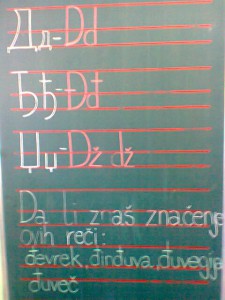 Дд-Dd
Ђђ-Đđ
Џџ-Dž dž
Da li znaš značenje
ovih reči:
đevrek, đinđuva, đuvegija
đuveč